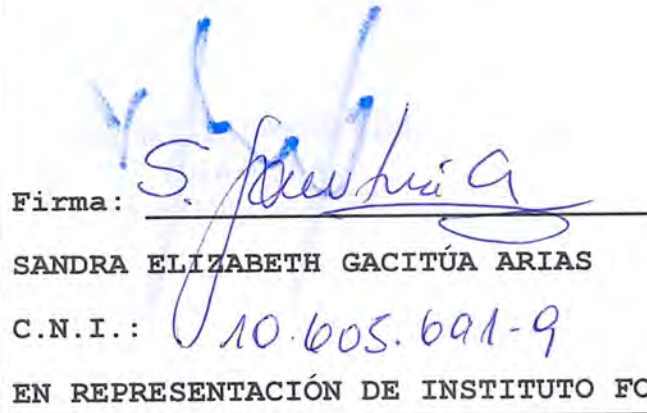 Firma: S. Gacitúa A
SANDRA ELIZABETH GACITÚA ARIAS
C.N.I.: 10.605.691-9
EN REPRESENTACIÓN DE INSTITUTO FO